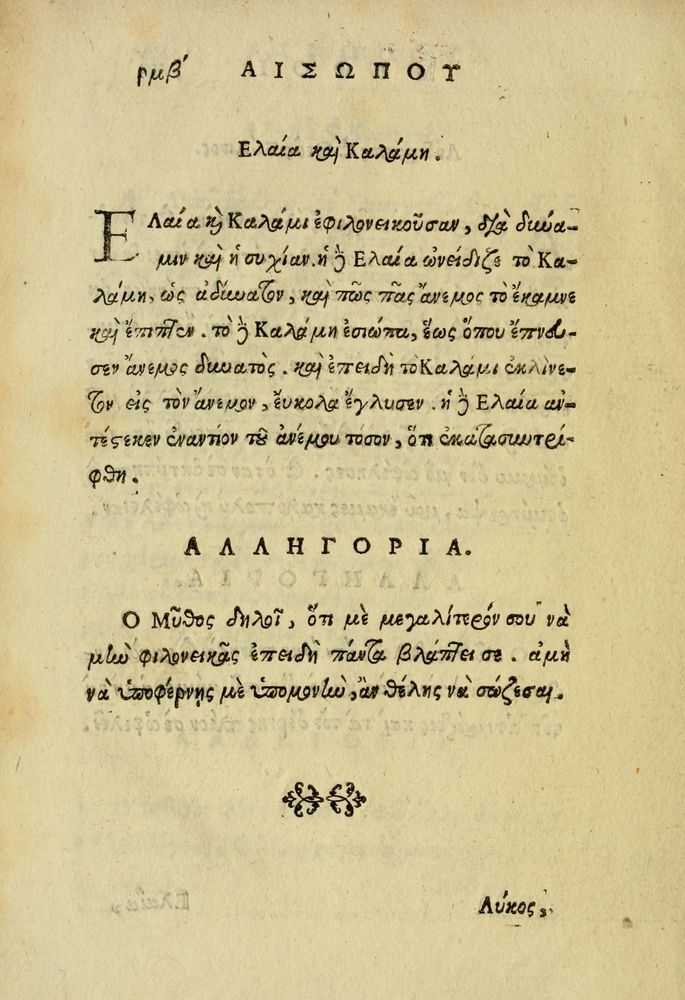 ρμβ´ ΑΙΣΩΠΟΥ
Ελαία καὶ Καλάμη.
ΕΛαία κὶ Καλάμι ἐφιλονεικοῦσαν, διὰ δύνα-
μιν καὶ ἡσυχίαν. ἡ δὲ Ελαία ὠνείδιζε τὸ Κα-
λάμη, ὡς ἀδύνατον, καὶ πῶς πᾶς ἄνεμος τὸ ἔκαμνε
καὶ ἔπιπτεν. τὸ δὲ Καλάμη ἐσιώπα, ἕως ὅπου ἔπνευ-
σεν ἄνεμος δυνατὸς. καὶ ἐπειδὴ τὸ Καλάμι ἐκλίνε-
τον εἰς τὸν ἄνεμον, ἔυκολα ἔγλυσεν. ἡ δὲ Ελαία ἀν-
τέστεκεν ἐναντίον τοῦ ἀνέμου τόσον, ὅτι ἐκατασυντρί-
φθη.
ΑΛΛΗΓΟΡΙΑ.
Ο Μῦθος δηλοῖ, ὅτι μὲ μεγαλίτερόν σου νὰ
μὴν φιλονεικᾷς ἐπειδὴ πάντα βλάπτει σε. ἀμὴ
νὰ ὑποφέρνῃς μὲ ὑπομονὴν, ἂν θέλῃς νὰ σώζεσαι.
Λύκος,